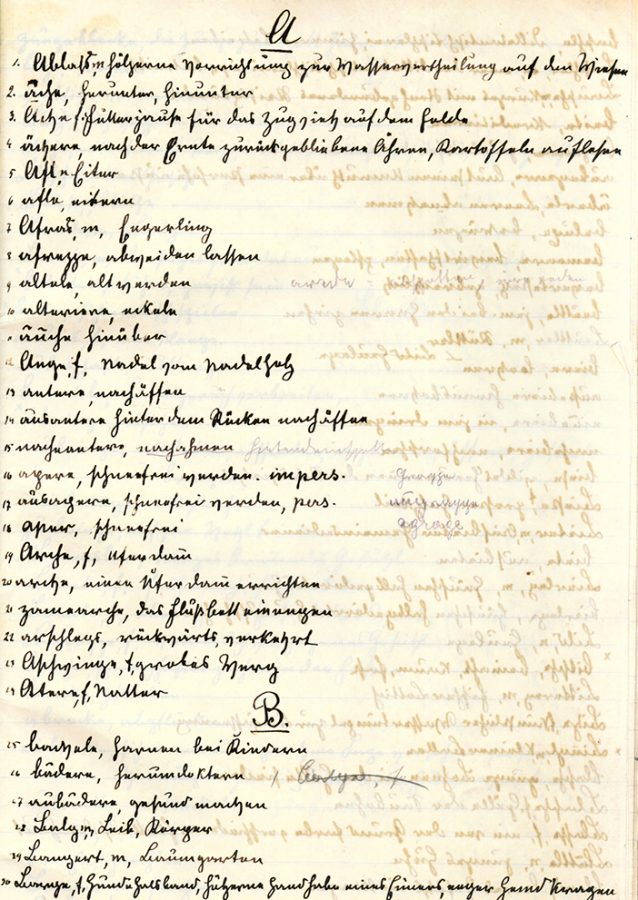 A
1. Ablass, m, hölzerne Vorrichtung zur Wasserverteilung auf den Wiesen
2. ache, herunter, hinunter
3. Ache f, Futterpause für das Zugvieh auf dem Felde
4 ächere, nach der Ernte zurückgebliebene Ähren, Kartoffeln auflesen
5 Afl, n Eiter
6 afle, eitern
7 Afras, m, Engerling
8 afrezze, abweiden lassen
9 altele, alt werden
10 alteriere, ekeln
11 anche hinüber
12 Ange, f, Nadel vom Nadelholz
13 antere, nachäffen
14 ausantere hinter dem Rücken nachäffen
15 nachantere, nachahmen
16 apere, schneefrei werden. impers.
17 ausapere, schneefrei werden, pers.
18 aper, schneefrei
19 Arche, f, Uferdam̅
20 arche, einen Uferdam̅ errichten
21 zamearche, das Flußbett einengen
22 arschlegs, rückwärts, verkehrt
23 Aschwinge, f, grobes Werg
24 Atere, f, Natter
B.
25 bachele, harnen bei Kindern
26 bädere, herumdoktern
27 aubädere, gesund machen
28 Balg, m, Leib, Körper
29 Bangert, m, Baumgarten
30 Bange, f, Hundehalsband, hölzerne Handhabe eines Eimers, enger Hemdkragen